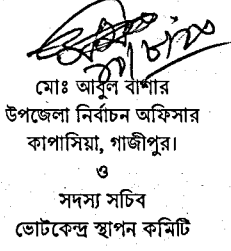 মোঃ আবুল বাশার
উপজেলা নির্বাচন অফিসার
কাপাসিয়া, গাজীপুর।
ও
সদস্য সচিব
ভোটকেন্দ্র স্থাপন কমিটি